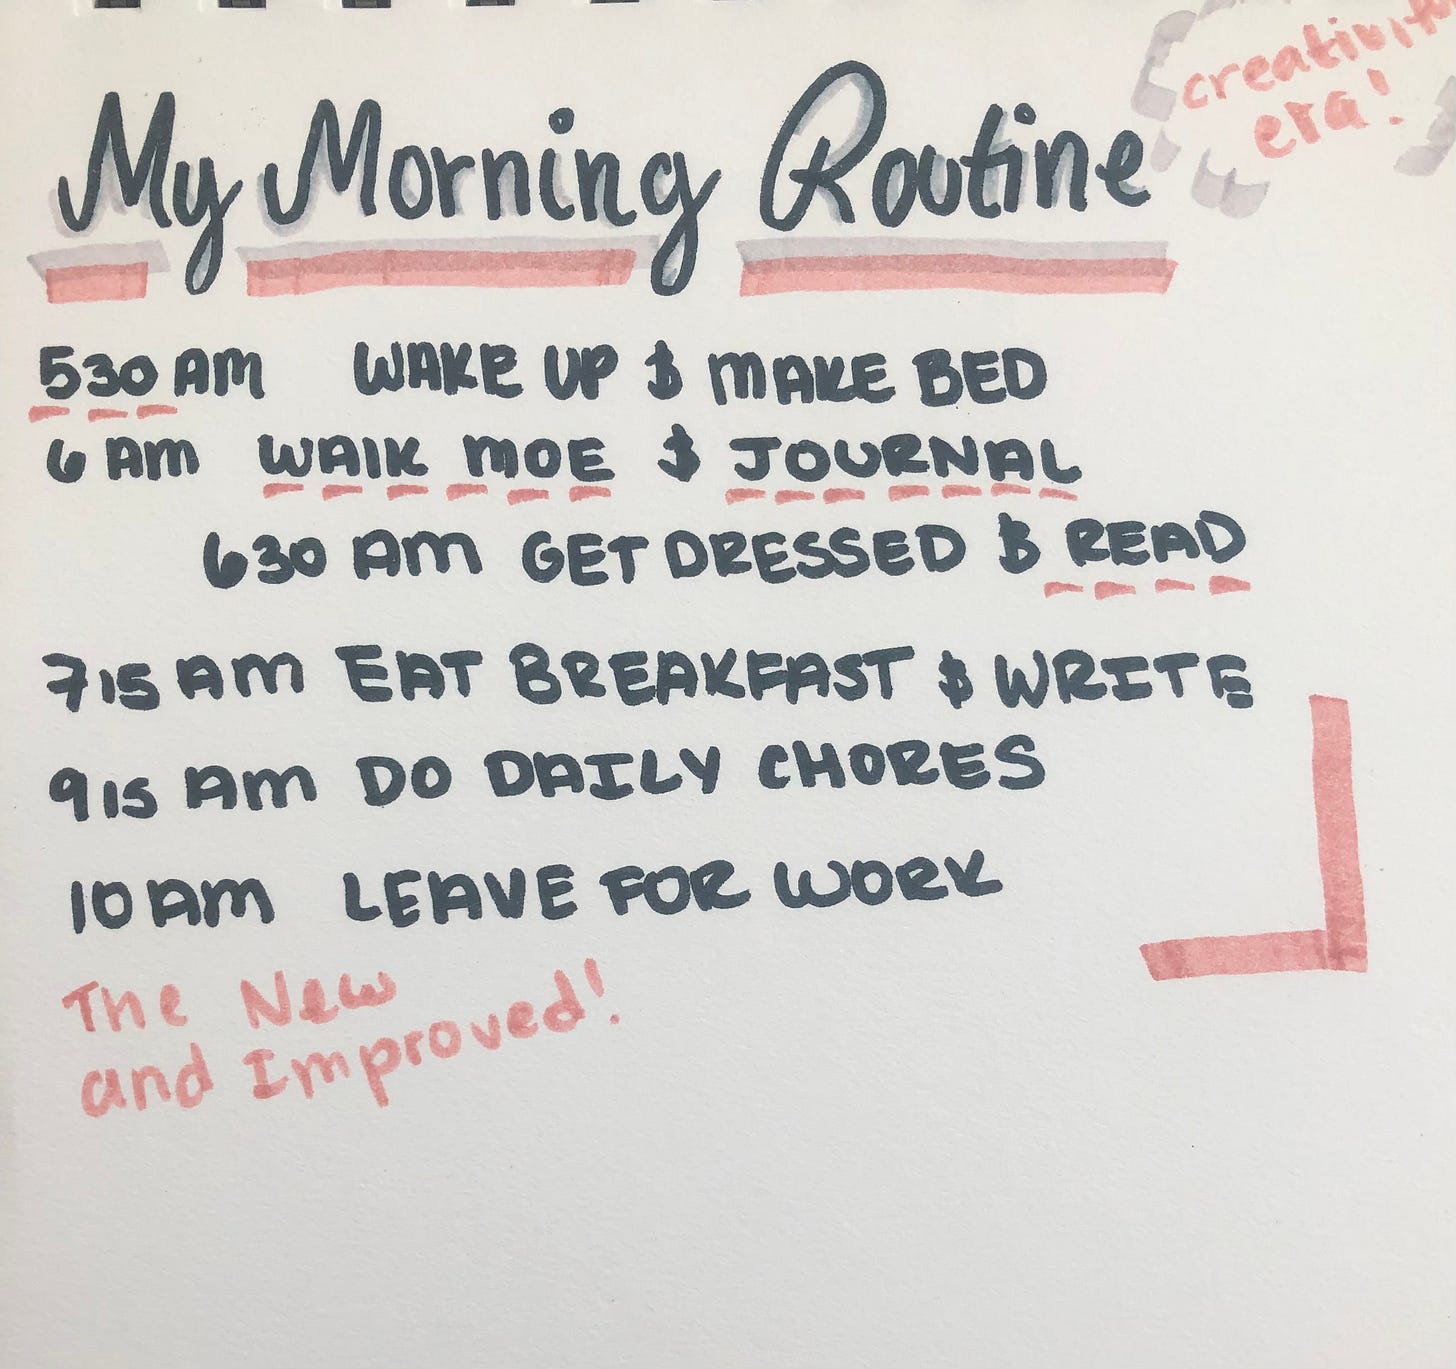 creativity
era!
My Morning Routine
530 AM WAKE UP & MAKE BED
6 AM WALK MOE & JOURNAL
630 AM GET DRESSED & READ
715 AM EAT BREAKFAST & WRITE
915 AM DO DAILY CHORES
10 AM LEAVE FOR WORK
The New
and Improved!